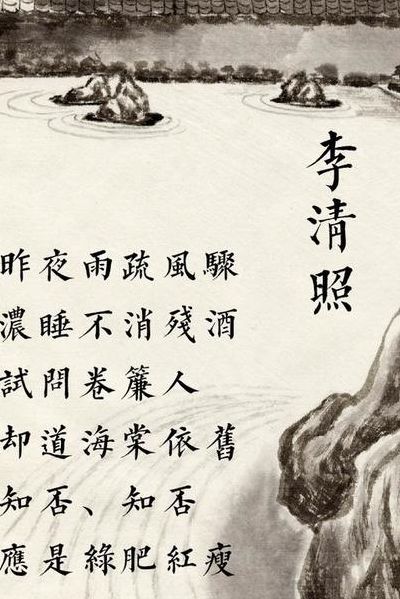 李清照
昨夜雨疏風驟
濃睡不消殘酒
試問卷簾人
却道海棠依舊
知否、知否
應是綠肥紅瘦